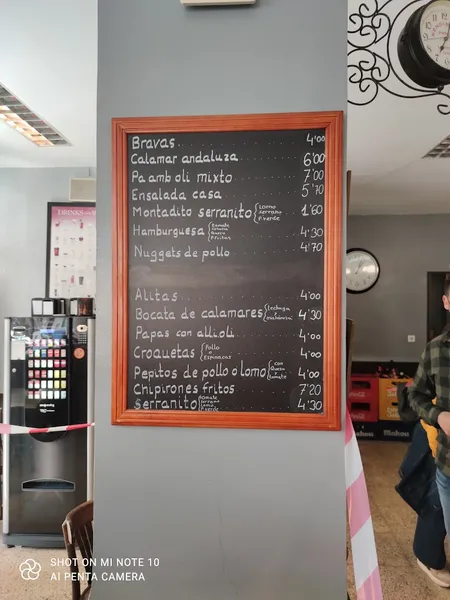 DRINKS
Bravas 4'00
Calamar andaluza 6'00
Pa amb oli mixto 7'00
Ensalada casa 5'70
Montadito serranito { Lomo serrano P. verde 1'60
Hamburguesa { tomate Queso P. fritas 4'30
Nuggets de pollo 4'70
Alitas 4'00
Bocata de calamares { lechuga mahonesa 4'30
Papas con allioli 4'00
Croquetas { Pollo Espinacas 4'00
Pepitos de pollo o lomo { con Queso tomate 4'00
Chipirones fritos 7'20
Serranito { tomate serrano Lomo P. verde 4'30
SHOT ON MI NOTE 10
AI PENTA CAMERA